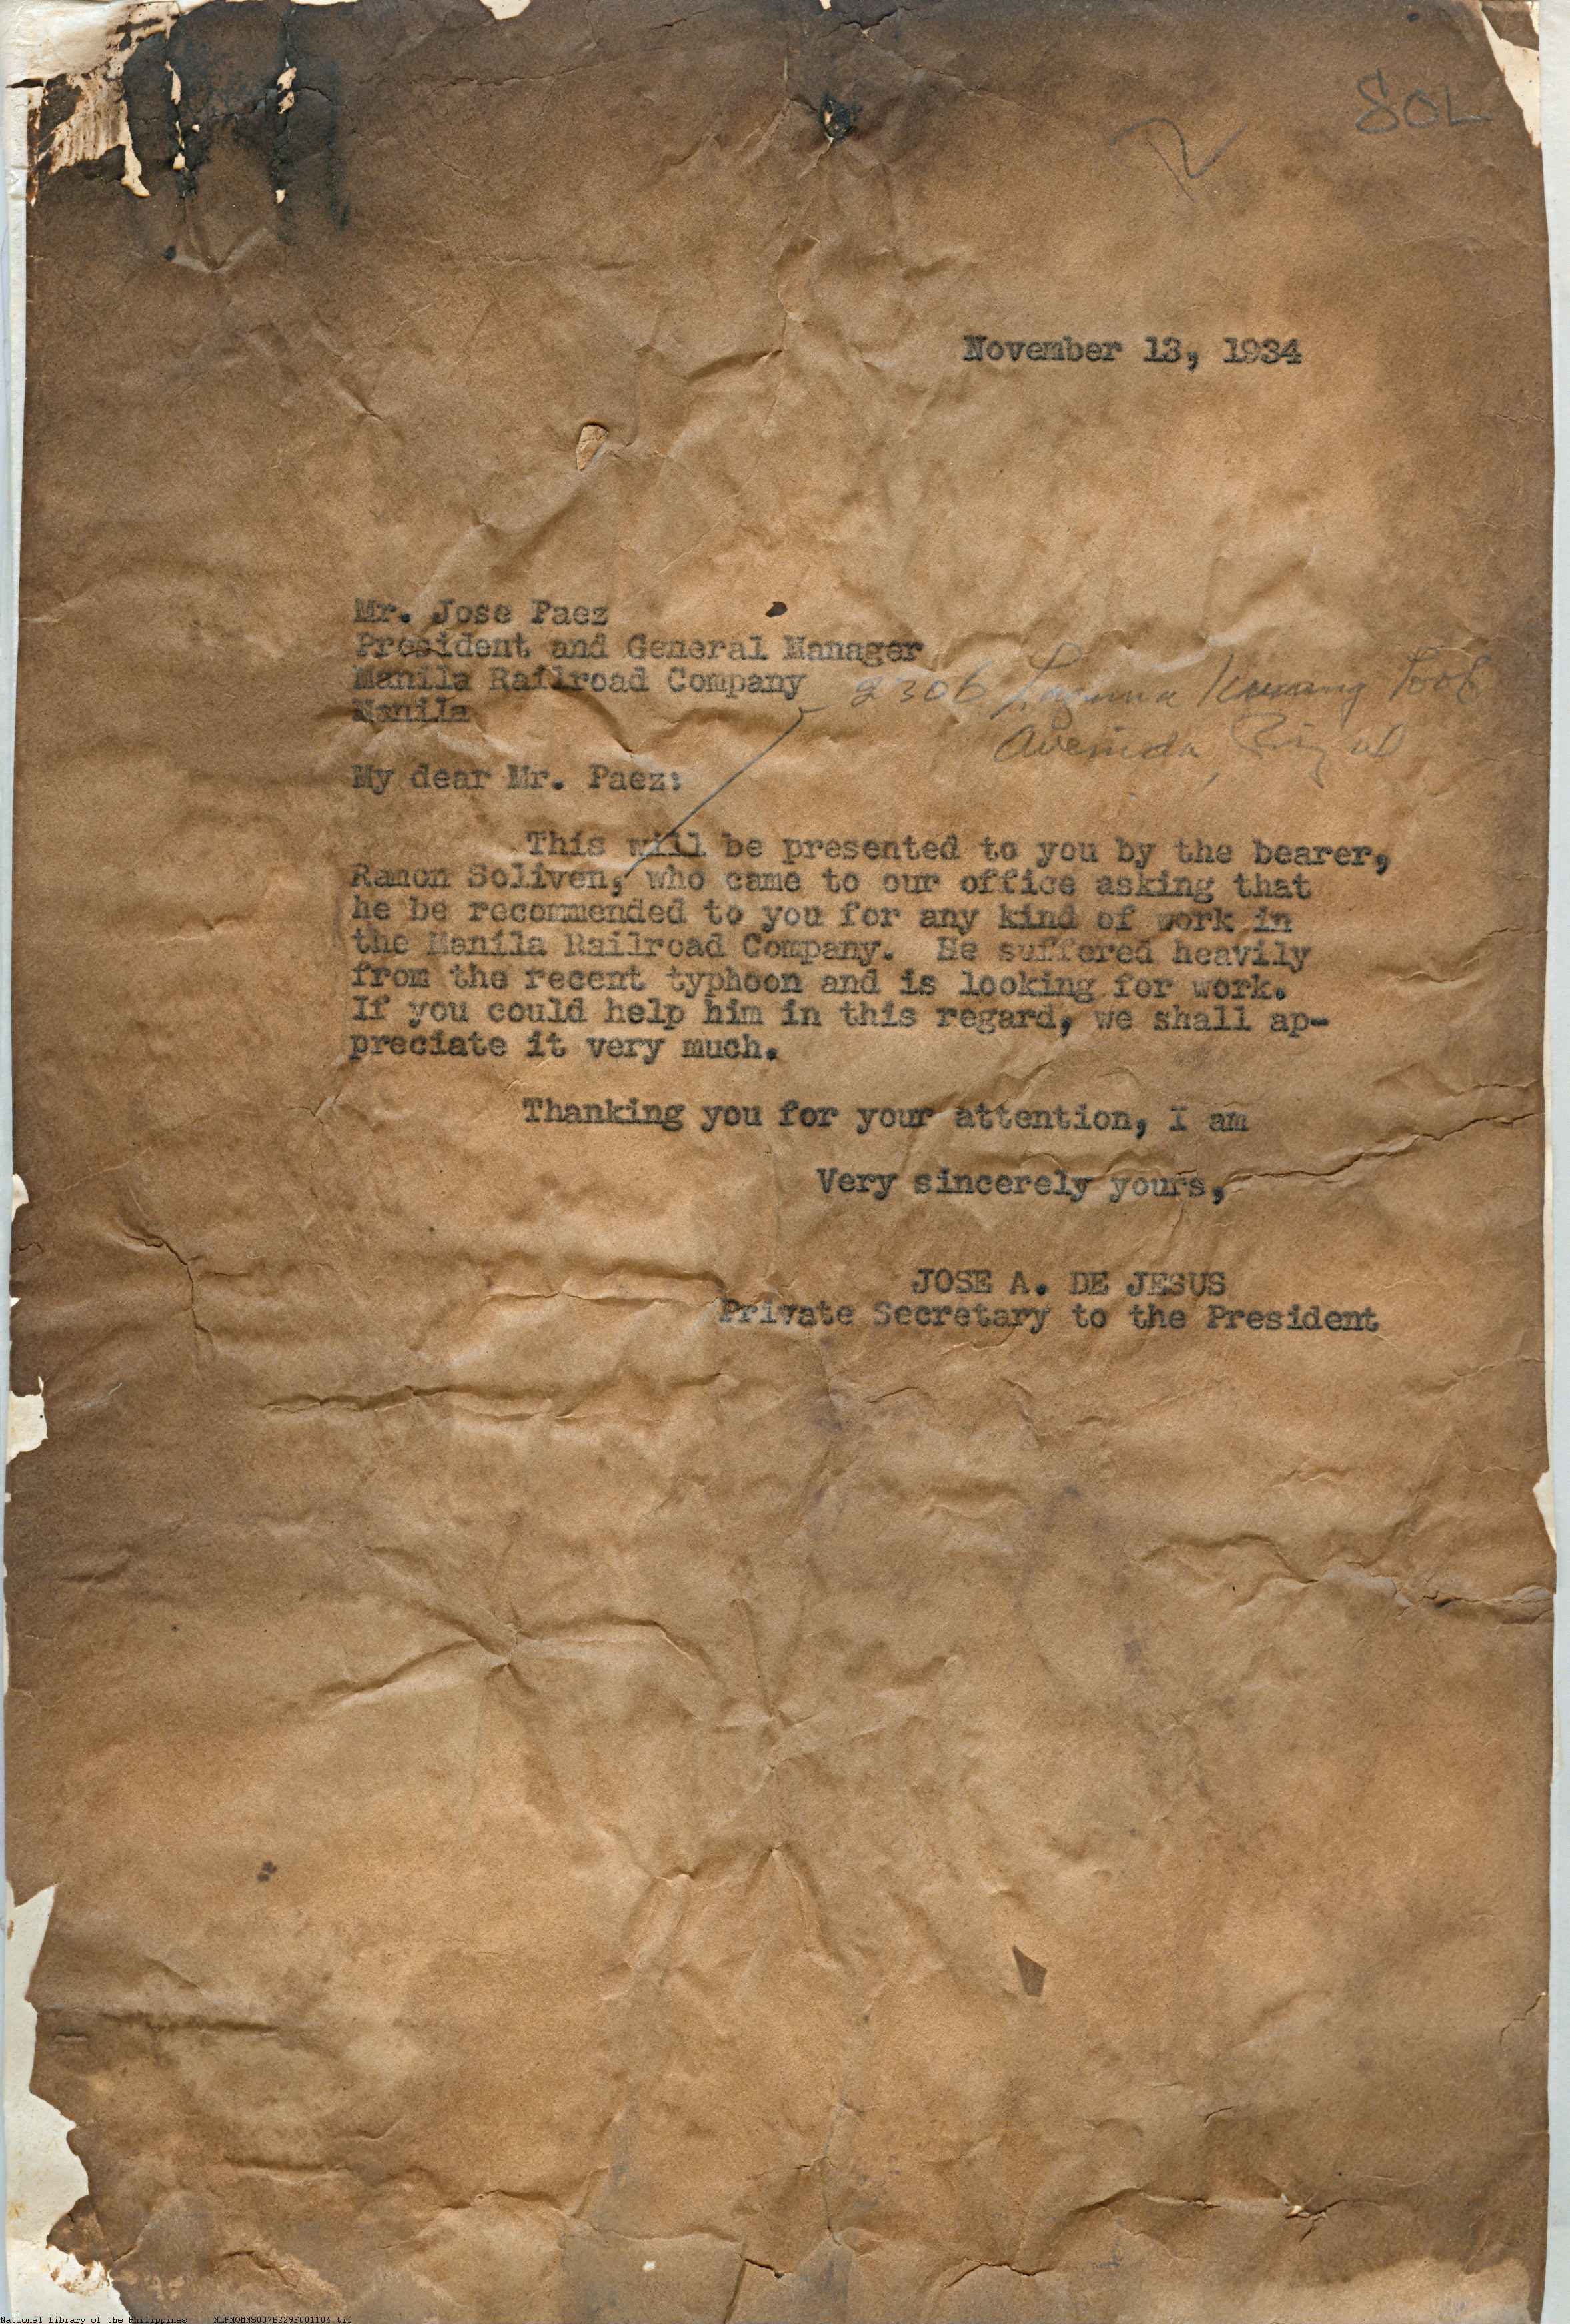 SOL
November 13, 1934
Mr. Jose Paez
President and General Manager
Manila Railroad Company
Manila
2306 Laguna
Avenida, Rizal
My dear Mr. Paez:
This will be presented to you by the bearer,
Ramon Soliven, who came to our office asking that
he be recommended to you for any kind of work in
the Manila Railroad Company. He suffered heavily
from the recent typhoon and is looking for work.
If you could help him in this regard, we shall ap-
preciate it very much.
Thanking you for your attention, I am
Very sincerely yours,
JOSE A. DE JESUS
Private Secretary to the President
National Library of the Philippines NLPMQMNS007B229F001104.tif